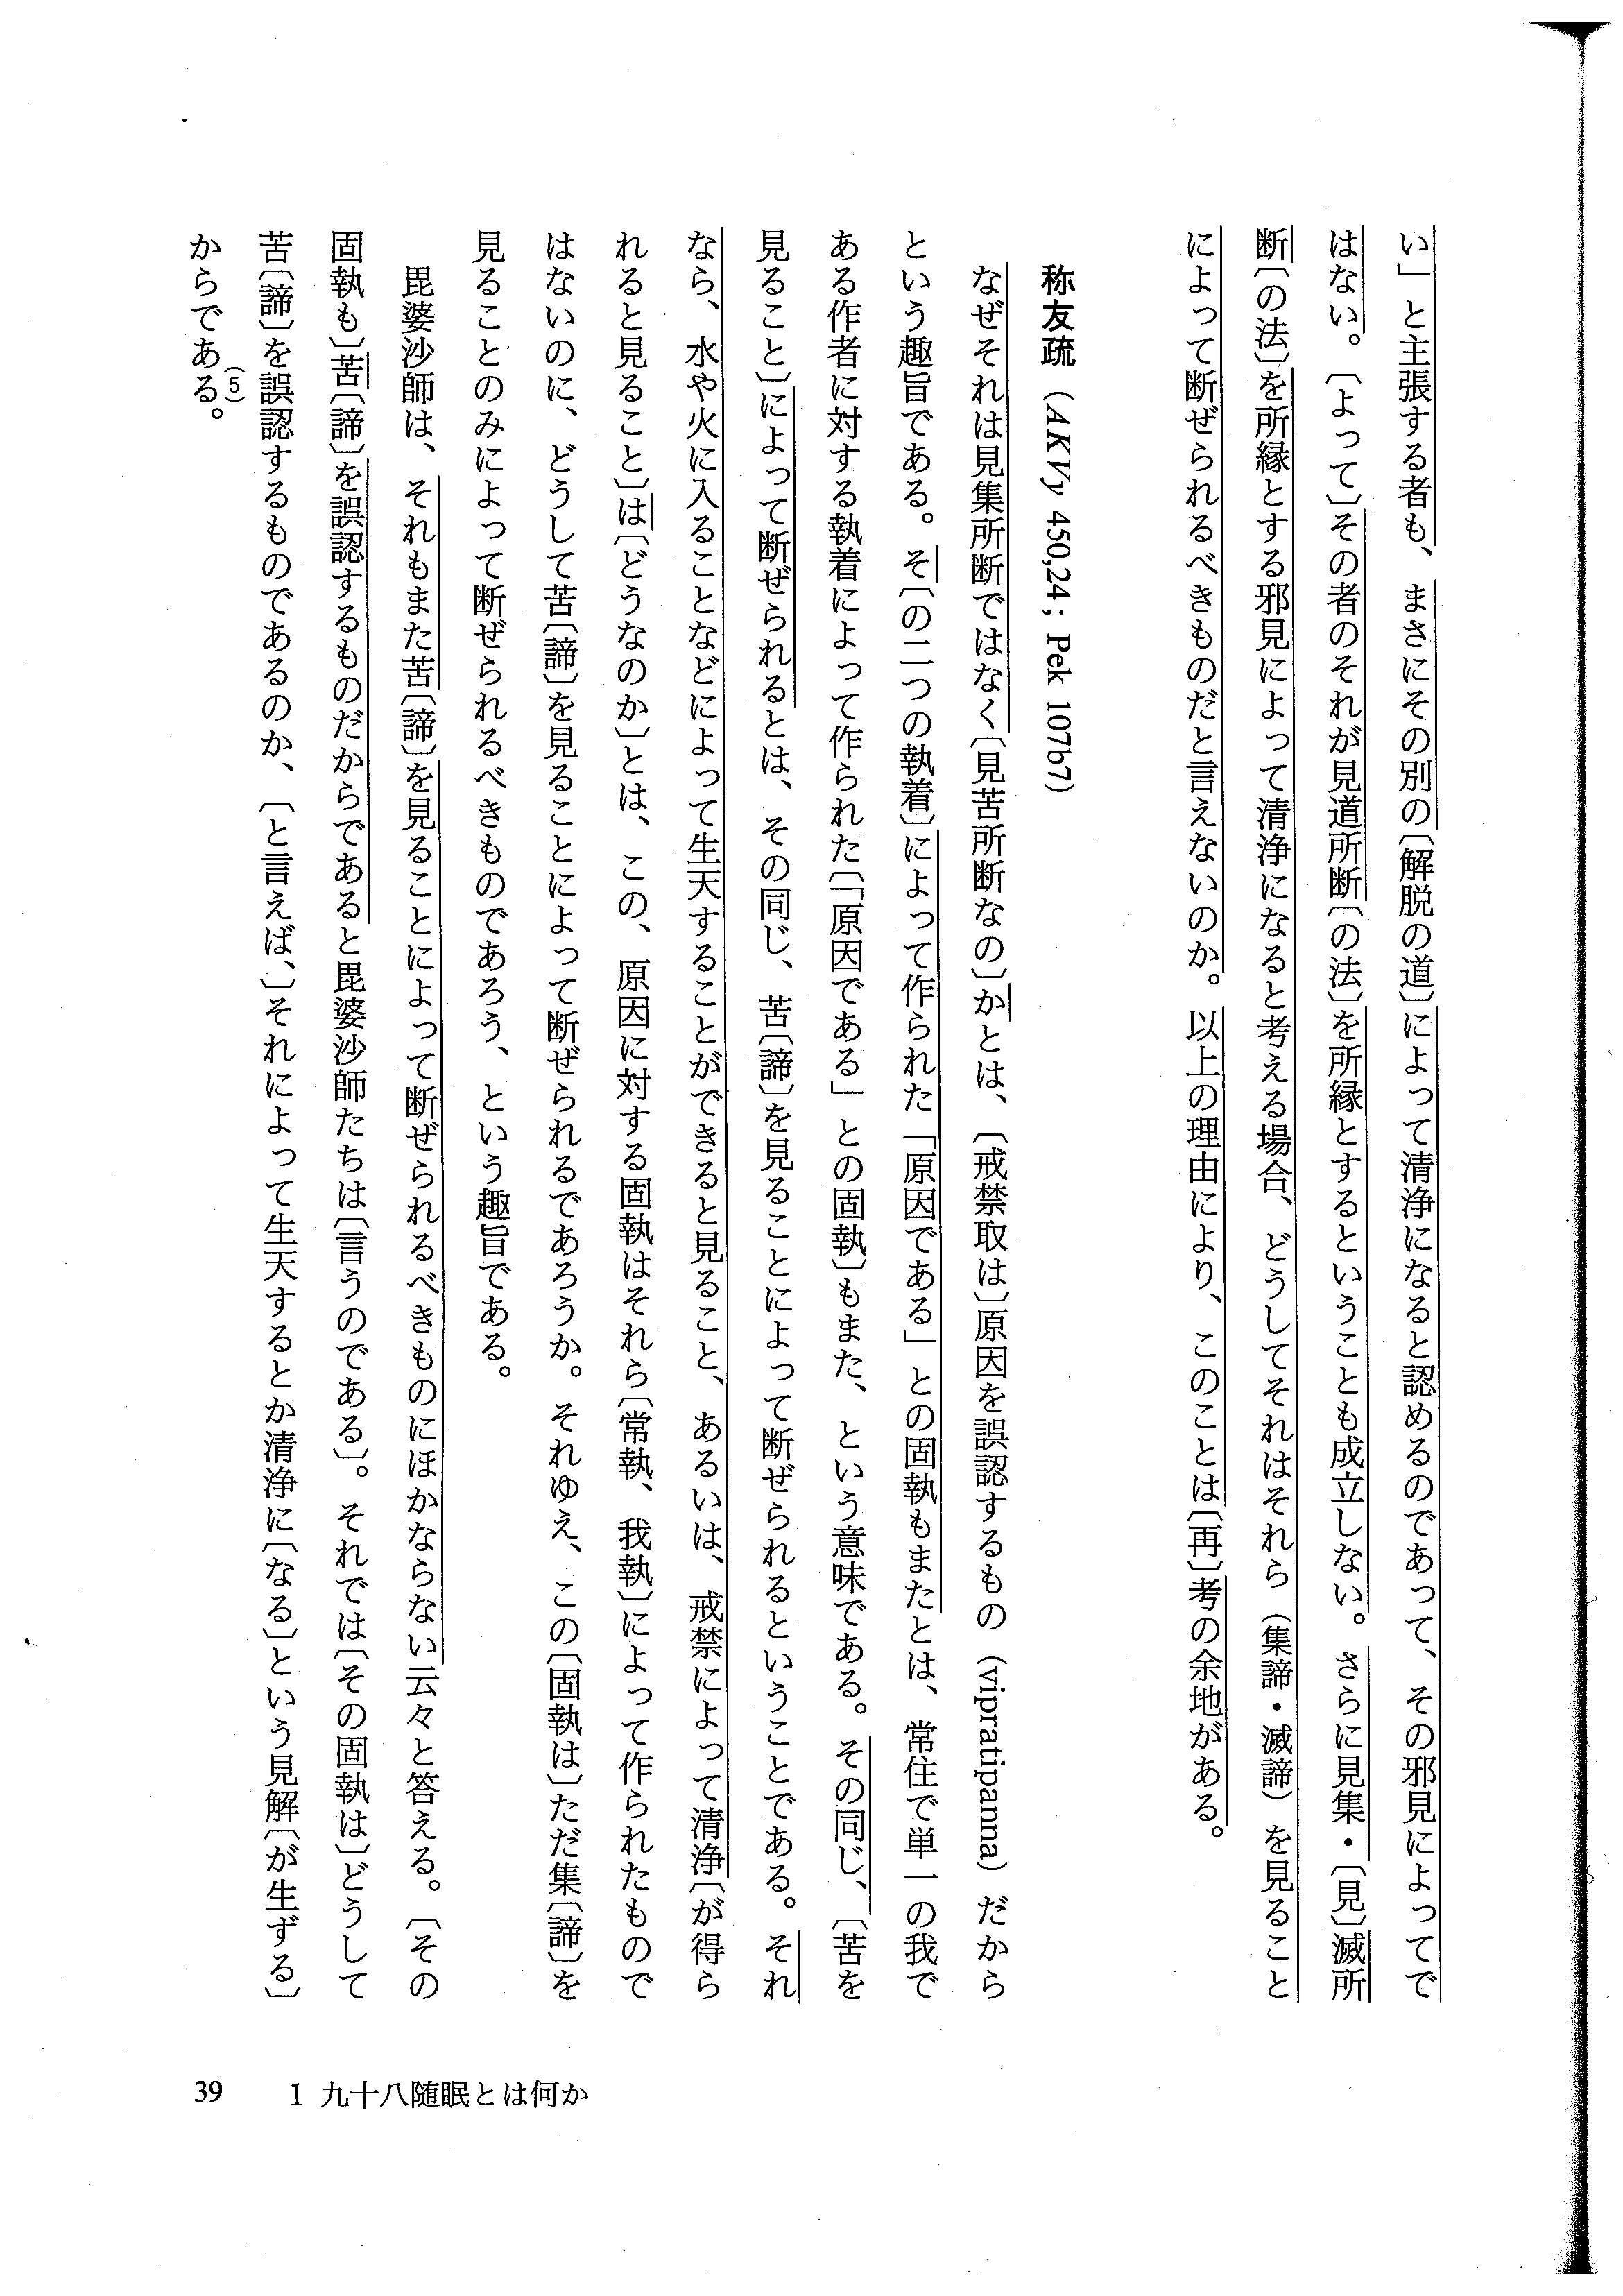 い」と主張する者も、まさにその別の〔解脱の道〕によって清浄になると認めるのであって、その邪見によってで
はない。〔よって〕その者のそれが見道所断〔の法〕を所縁とするということも成立しない。さらに見集・〔見〕滅所
断〔の法〕を所縁とする邪見によって清浄になると考える場合、どうしてそれはそれら（集諦・滅諦）を見ること
によって断ぜられるべきものだと言えないのか。以上の理由により、このことは〔再〕考の余地がある。
称友疏（AKVy 450,24; Pek 107b7）
なぜそれは見集所断ではなく〔見苦所断なの〕かとは、〔戒禁取は〕原因を誤認するもの（vipratipanna）だから
という趣旨である。そ〔の二つの執着〕によって作られた「原因である」との固執もまたとは、常住で単一の我で
ある作者に対する執着によって作られた〔「原因である」との固執〕もまた、という意味である。その同じ、〔苦を
見ること〕によって断ぜられるとは、その同じ、苦〔諦〕を見ることによって断ぜられるということである。それ
なら、水や火に入ることなどによって生天することができると見ること、あるいは、戒禁によって清浄〔が得ら
れると見ること〕は〔どうなのか〕とは、この、原因に対する固執はそれら〔常執、我執〕によって作られたもので
はないのに、どうして苦〔諦〕を見ることによって断ぜられるであろうか。それゆえ、この〔固執は〕ただ集〔諦〕を
見ることのみによって断ぜられるべきものであろう、という趣旨である。
毘婆沙師は、それもまた苦〔諦〕を見ることによって断ぜられるべきものにほかならない云々と答える。〔その
固執も〕苦〔諦〕を誤認するものだからであると毘婆沙師たちは〔言うのである〕。それでは〔その固執は〕どうして
苦〔諦〕を誤認するものであるのか、〔と言えば、〕それによって生天するとか清浄に〔なる〕という見解〔が生ずる〕
からである。(5)
39　1 九十八随眠とは何か